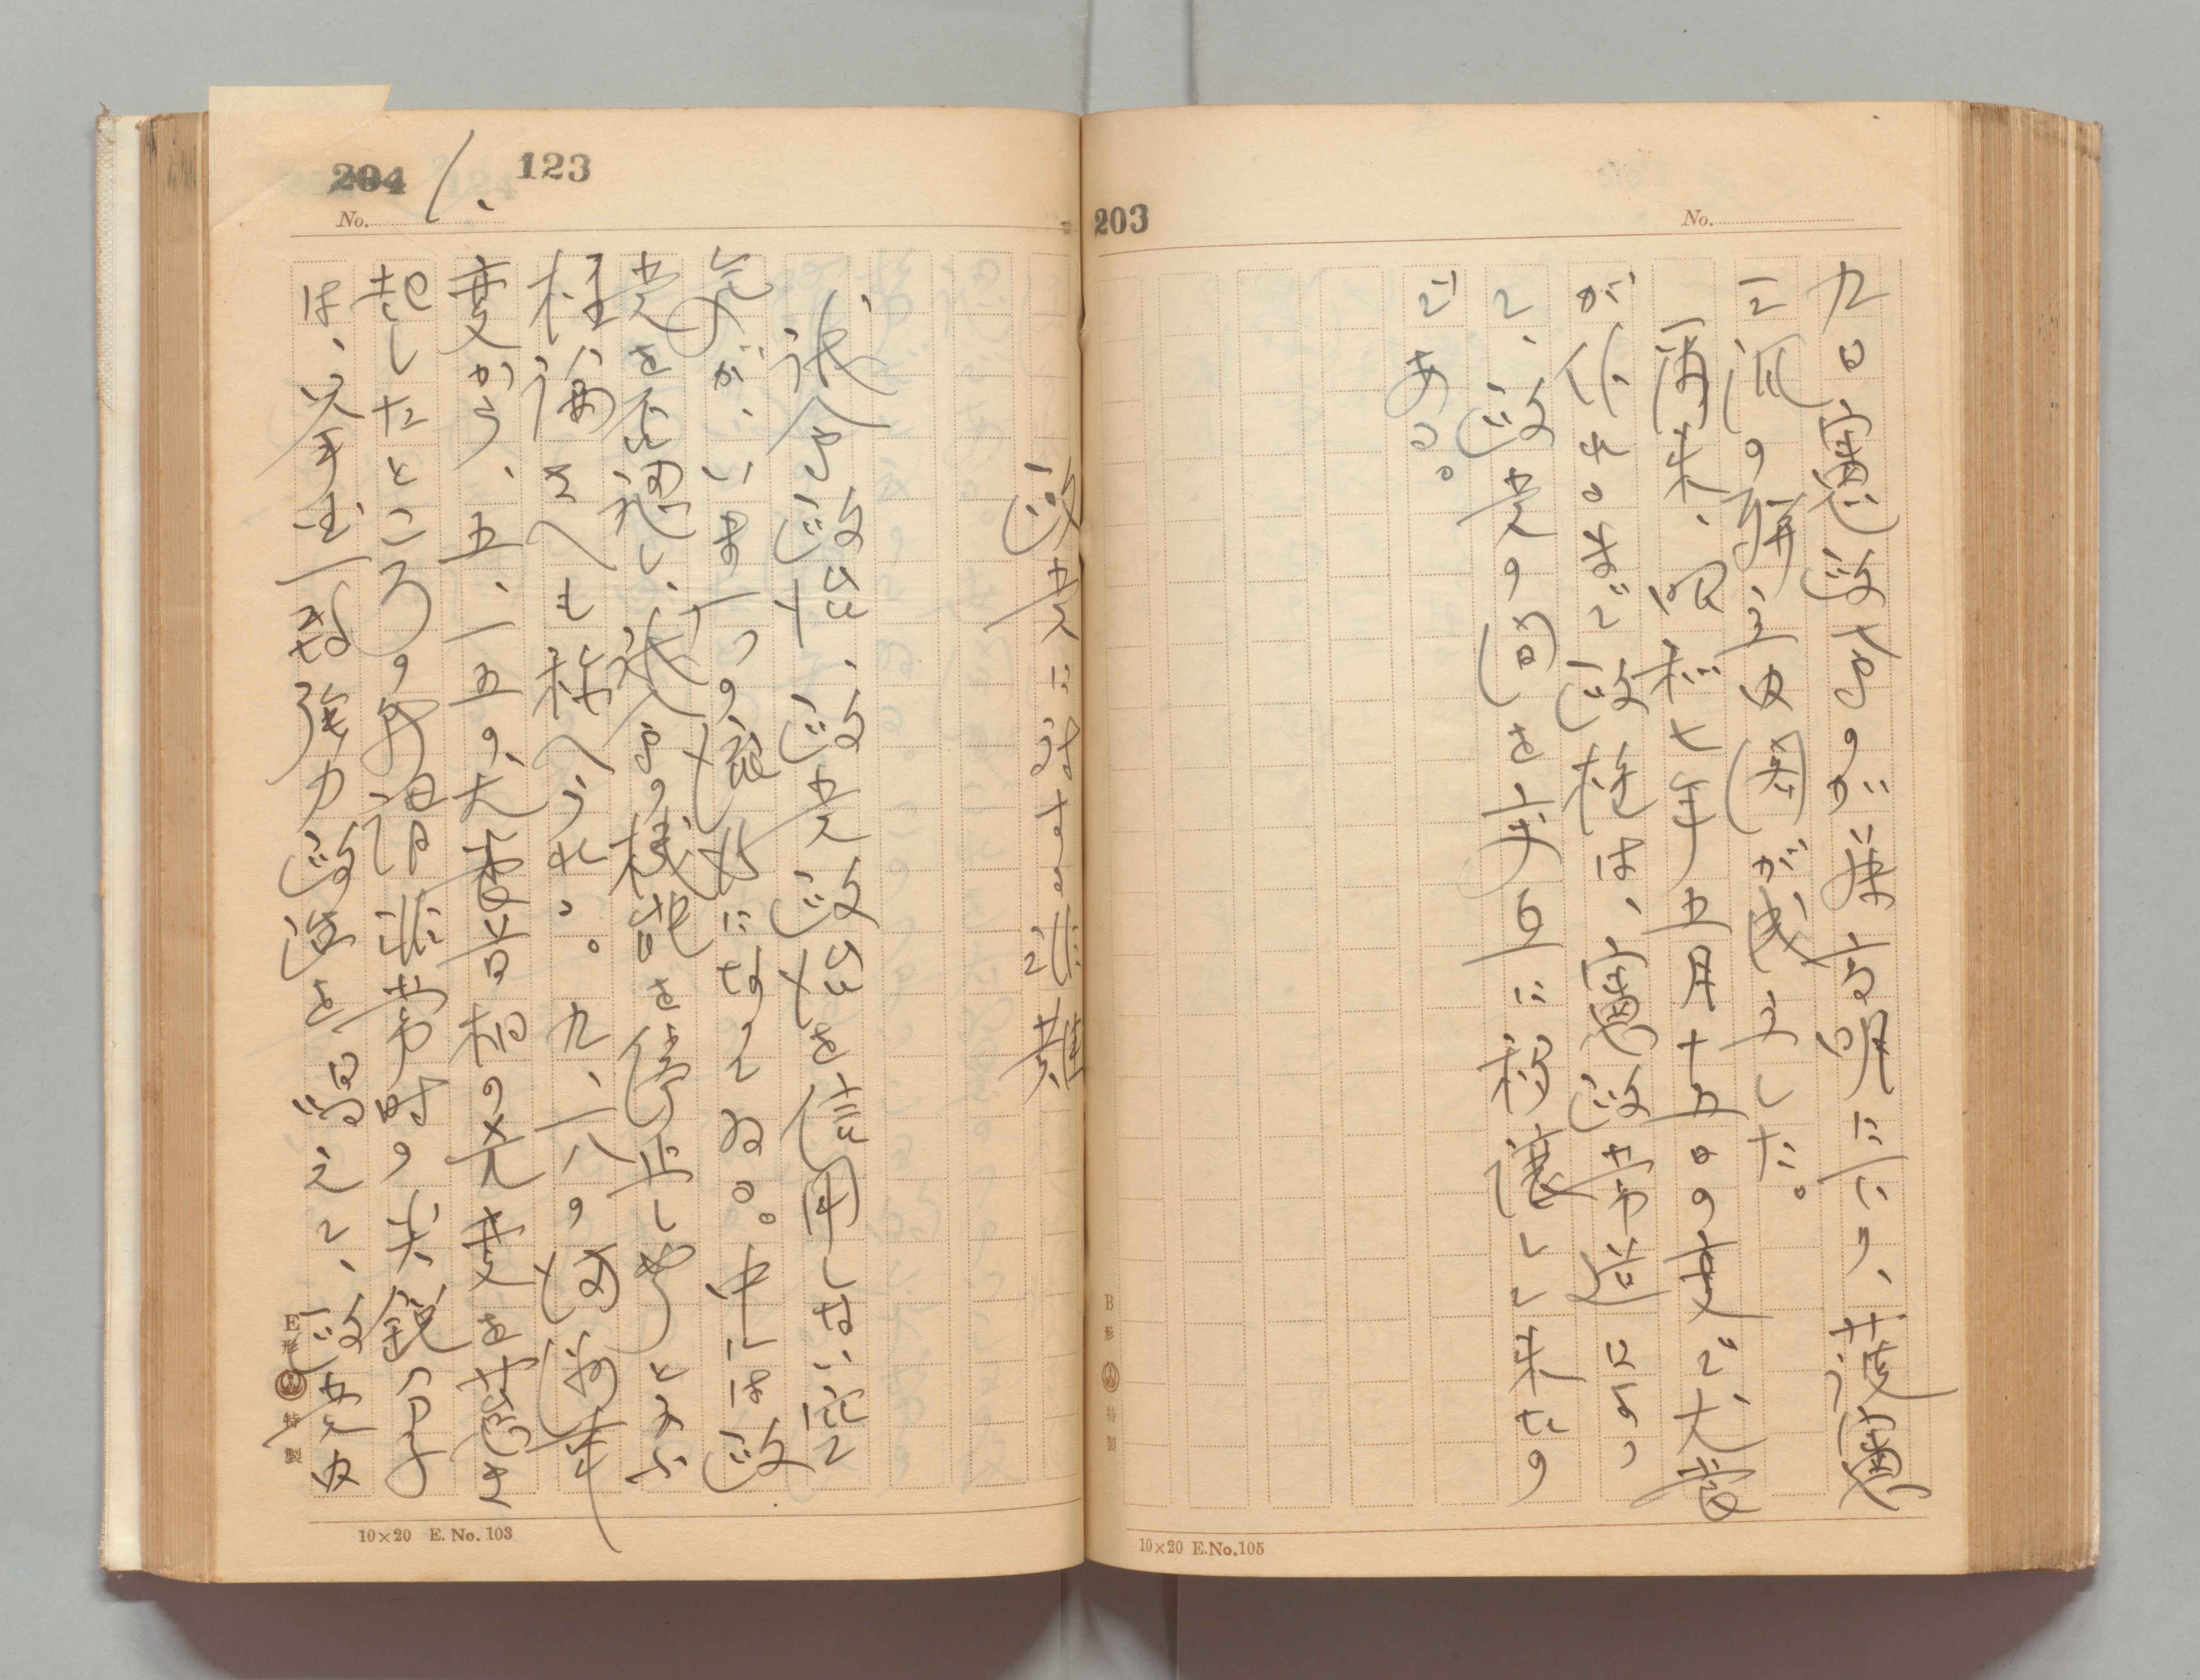 No.
203
九日憲政会の加藤高明に下り、護憲
三派の聯立内閣が成立した。
爾来、昭和七年五月十五日の変で、犬養
が仆れるまで政権は、憲政常道によつ
て、政党の間を交互に移譲して来たの
である。
B形 特製
10×20 E.No.105
204 1. 123
No.
政党に対する非難
議会政治、政党政治を信用しない空
気が、いま一つの流行になつてゐる。中には政
党を否認し、議会の機能を停止しやうと云ふ
極論さへも称へられる。九、一八の満洲事
変から、五、一五の犬養首相の兇変を惹き
起したところの所謂非常時の尖鋭分子
は、挙国一致強力政治を唱えて、政党内
E形 特製
10×20 E. No. 103